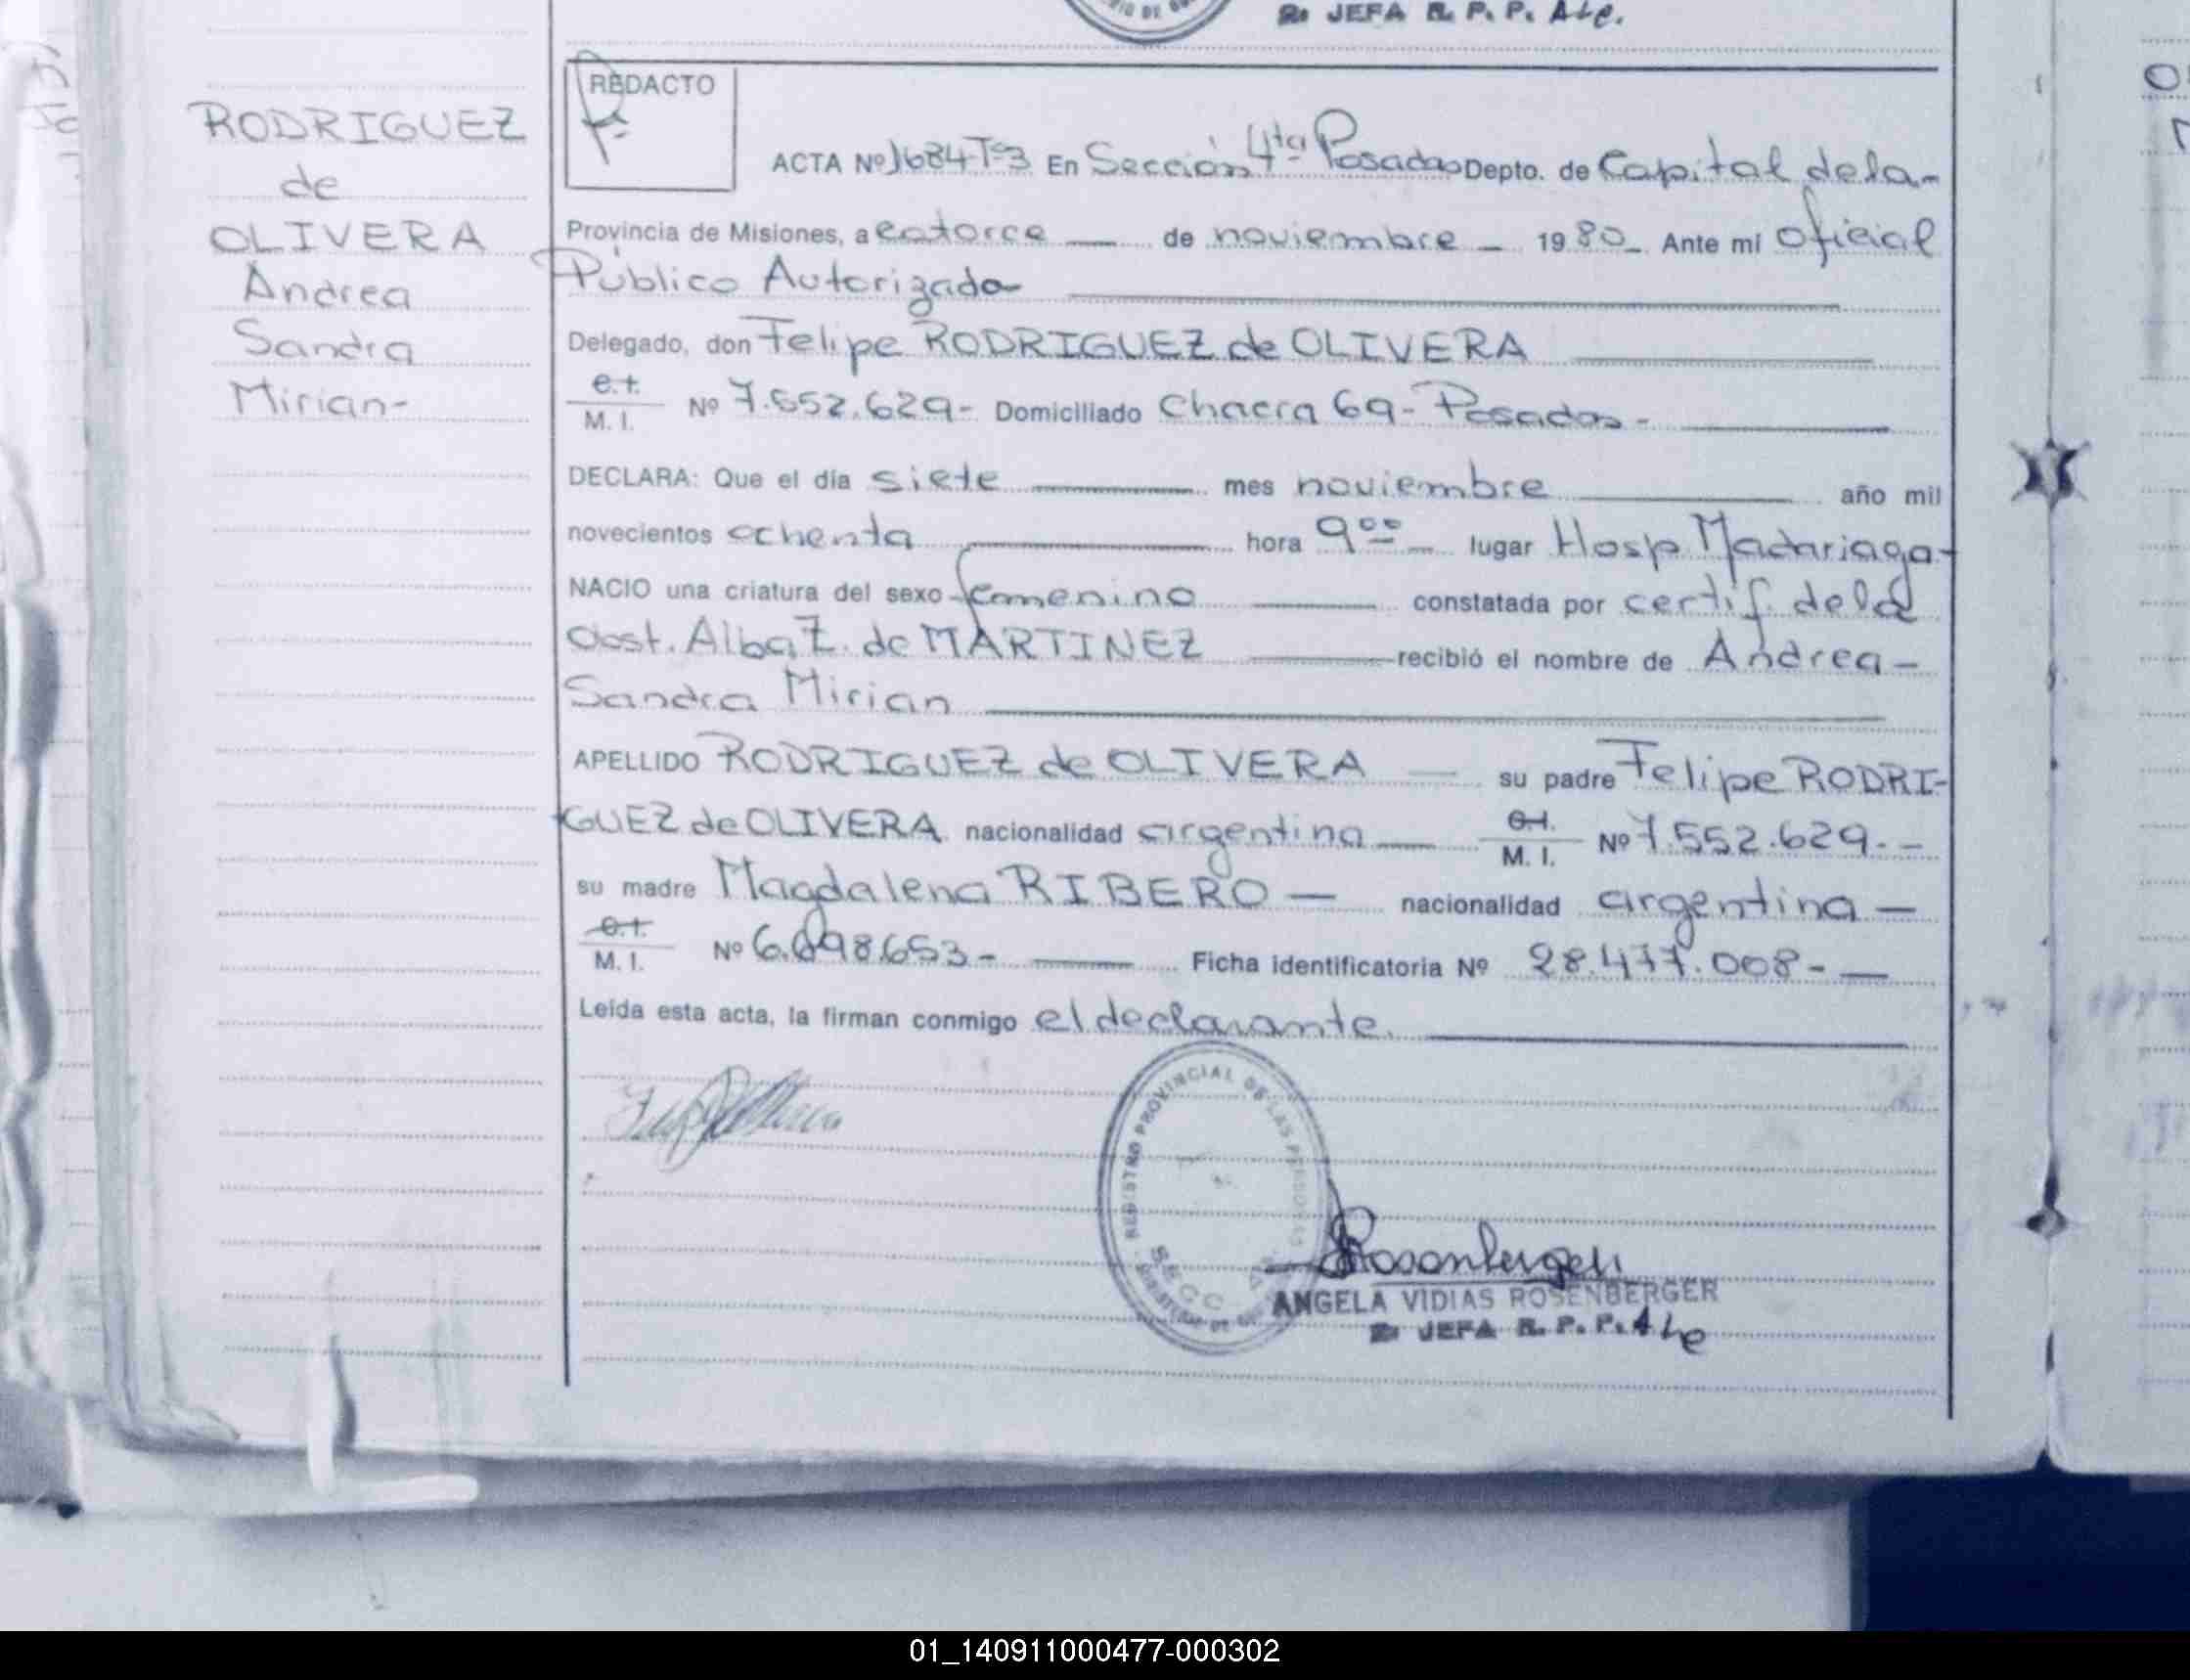 2º JEFA R. P. P. Ale.
RODRIGUEZ
de
OLIVERA
Andrea
Sandra
Mirian-
REDACTO
ACTA Nº 1684 Tº3 En Sección 4ta Posadas Depto. de Capital de la-
Provincia de Misiones, a catorce — de noviembre — 1980_ Ante mi Oficial
Público Autorizado
Delegado, don Felipe RODRIGUEZ de OLIVERA
C.I.
M. I. Nº 7.552.629- Domiciliado Chacra 69- Posadas-
DECLARA: Que el día siete mes noviembre año mil
novecientos ochenta hora 9ºº lugar Hosp Madariaga-
NACIO una criatura del sexo femenino constatada por certif. de la
Obst. Alba Z. de MARTINEZ recibió el nombre de Andrea-
Sandra Mirian
APELLIDO RODRIGUEZ de OLIVERA — su padre Felipe RODRI-
GUEZ de OLIVERA nacionalidad argentina — C.I.
M. I. Nº 7.552.629.-
su madre Magdalena RIBERO — nacionalidad argentina —
C.I.
M. I. Nº 6.698.653- Ficha identificatoria Nº 28.477.008-
Leída esta acta, la firman conmigo el declarante.
REGISTRO PROVINCIAL DE LAS PERSONAS
SECC 4ª
ANGELA VIDIAS ROSENBERGER
2º JEFA R. P. P. Ale
01_140911000477-000302